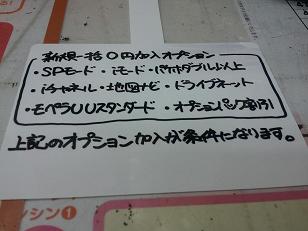 新規一括0円加入オプション
・SPモード・iモード・パケホダブル以上
・iチャネル・地図ナビ・ドライブネット
・モペラUUスタンダード・オプションパック割引
上記のオプション加入が条件になります。
シン①